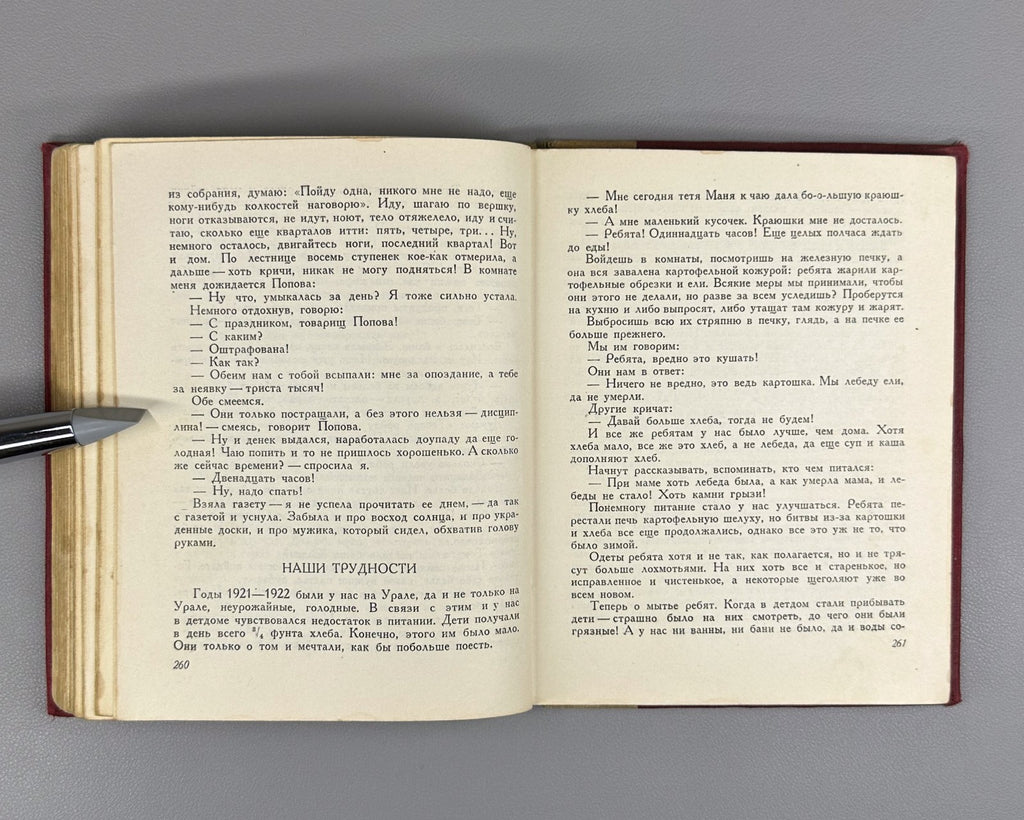 из собрания, думаю: «Пойду одна, никого мне не надо, еще
кому-нибудь колкостей наговорю». Иду, шагаю по вершку,
ноги отказываются, не идут, ноют, тело отяжелело, иду и счи-
таю, сколько еще кварталов итти: пять, четыре, три... Ну,
немного осталось, двигайтесь ноги, последний квартал! Вот
и дом. По лестнице восемь ступенек кое-как отмерила, а
дальше — хоть кричи, никак не могу подняться! В комнате
меня дожидается Попова:
— Ну что, умыкалась за день? Я тоже сильно устала.
Немного отдохнув, говорю:
— С праздником, товарищ Попова!
— С каким?
— Оштрафована!
— Как так?
— Обеим нам с тобой всыпали: мне за опоздание, а тебе
за неявку — триста тысяч!
Обе смеемся.
— Они только постращали, а без этого нельзя — дисцип-
лина! — смеясь, говорит Попова.
— Ну и денек выдался, наработалась доупаду да еще го-
лодная! Чаю попить и то не пришлось хорошенько. А сколько
же сейчас времени? — спросила я.
— Двенадцать часов!
— Ну, надо спать!
Взяла газету — я не успела прочитать ее днем, — да так
с газетой и уснула. Забыла и про восход солнца, и про укра-
денные доски, и про мужика, который сидел, обхватив голову
руками.
НАШИ ТРУДНОСТИ
Годы 1921—1922 были у нас на Урале, да и не только на
Урале, неурожайные, голодные. В связи с этим и у нас
в детдоме чувствовался недостаток в питании. Дети получали
в день всего ³/₄ фунта хлеба. Конечно, этого им было мало.
Они только о том и мечтали, как бы побольше поесть.
260
— Мне сегодня тетя Маня к чаю дала бо-о-льшую краюш-
ку хлеба!
— А мне маленький кусочек. Краюшки мне не досталось.
— Ребята! Одиннадцать часов! Еще целых полчаса ждать
до еды!
Войдешь в комнаты, посмотришь на железную печку, а
она вся завалена картофельной кожурой: ребята жарили кар-
тофельные обрезки и ели. Всякие меры мы принимали, чтобы
они этого не делали, но разве за всем уследишь? Проберутся
на кухню и либо выпросят, либо утащат там кожуру и жарят.
Выбросишь всю их стряпню в печку, глядь, а на печке ее
больше прежнего.
Мы им говорим:
— Ребята, вредно это кушать!
Они нам в ответ:
— Ничего не вредно, это ведь картошка. Мы лебеду ели,
да не умерли.
Другие кричат:
— Давай больше хлеба, тогда не будем!
И все же ребятам у нас было лучше, чем дома. Хотя
хлеба мало, все же это хлеб, а не лебеда, да еще суп и каша
дополняют хлеб.
Начнут рассказывать, вспоминать, кто чем питался:
— При маме хоть лебеда была, а как умерла мама, и ле-
беды не стало! Хоть камни грызи!
Понемногу питание стало у нас улучшаться. Ребята пе-
рестали печь картофельную шелуху, но битвы из-за картошки
и хлеба все еще продолжались, однако все это уж не то, что
было зимой.
Одеты ребята хотя и не так, как полагается, но и не тря-
сут больше лохмотьями. На них хоть все и старенькое, но
исправленное и чистенькое, а некоторые щеголяют уже во
всем новом.
Теперь о мытье ребят. Когда в детдом стали прибывать
дети — страшно было на них смотреть, до чего они были
грязные! А у нас ни ванны, ни бани не было, да и воды со-
261